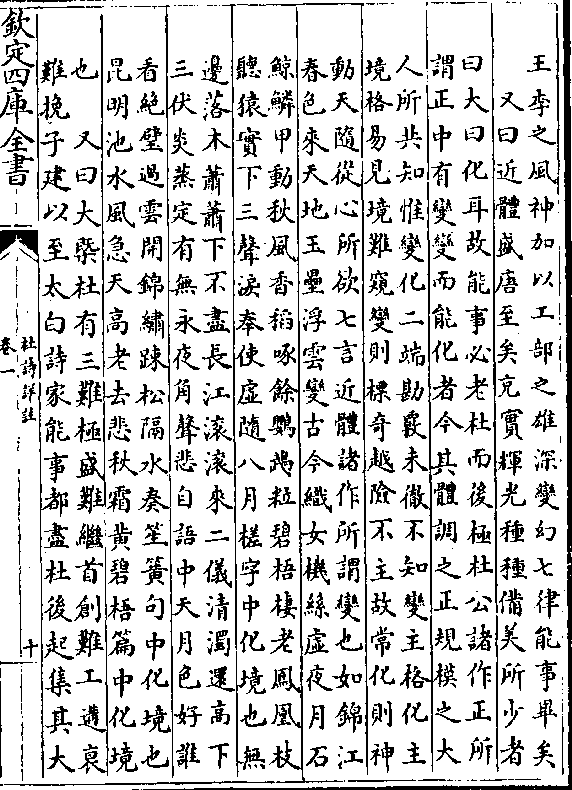 王李之風神加以工部之雄深變幻七律能事畢矣
又曰近體盛唐至矣充實輝光種種備美所少者
曰大曰化耳故能事必老杜而後極杜公諸作正所
謂正中有變變而能化者今其體調之正規模之大
人所共知惟變化二端勘覈未徹不知變主格化主
境格易見境難窺變則標奇越險不主故常化則神
動天隨從心所欲七言近體諸作所謂變也如錦江
春色來天地玉壘浮雲變古今織女機絲虛夜月石
鯨鱗甲動秋風香稻啄餘鸚鵡粒碧梧棲老鳳凰枝
聽猿實下三聲淚奉使虛隨八月槎字中化境也無
邊落木蕭蕭下不盡長江滾滾來二儀清濁還高下
三伏炎蒸定有無永夜角聲悲自語中天月色好誰
看絶壁過雲開錦繡踈松隔水奏笙簧句中化境也
昆明池水風急天高老去悲秋霜黄碧梧篇中化境
也　又曰大槩杜有三難極盛難繼首創難工遘衰
難挽子建以至太白詩家能事都盡杜後起集其大
欽定四庫全書
杜詩詳註
卷一
十